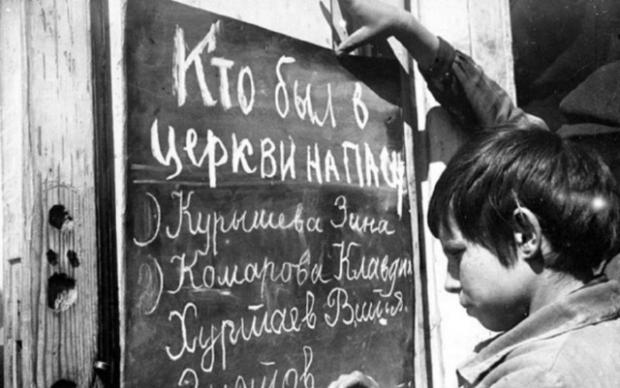 Кто был в
церкви на Пасх
1) Курышева Зина
2) Комарова Клавдия
Хуртаев Витя.